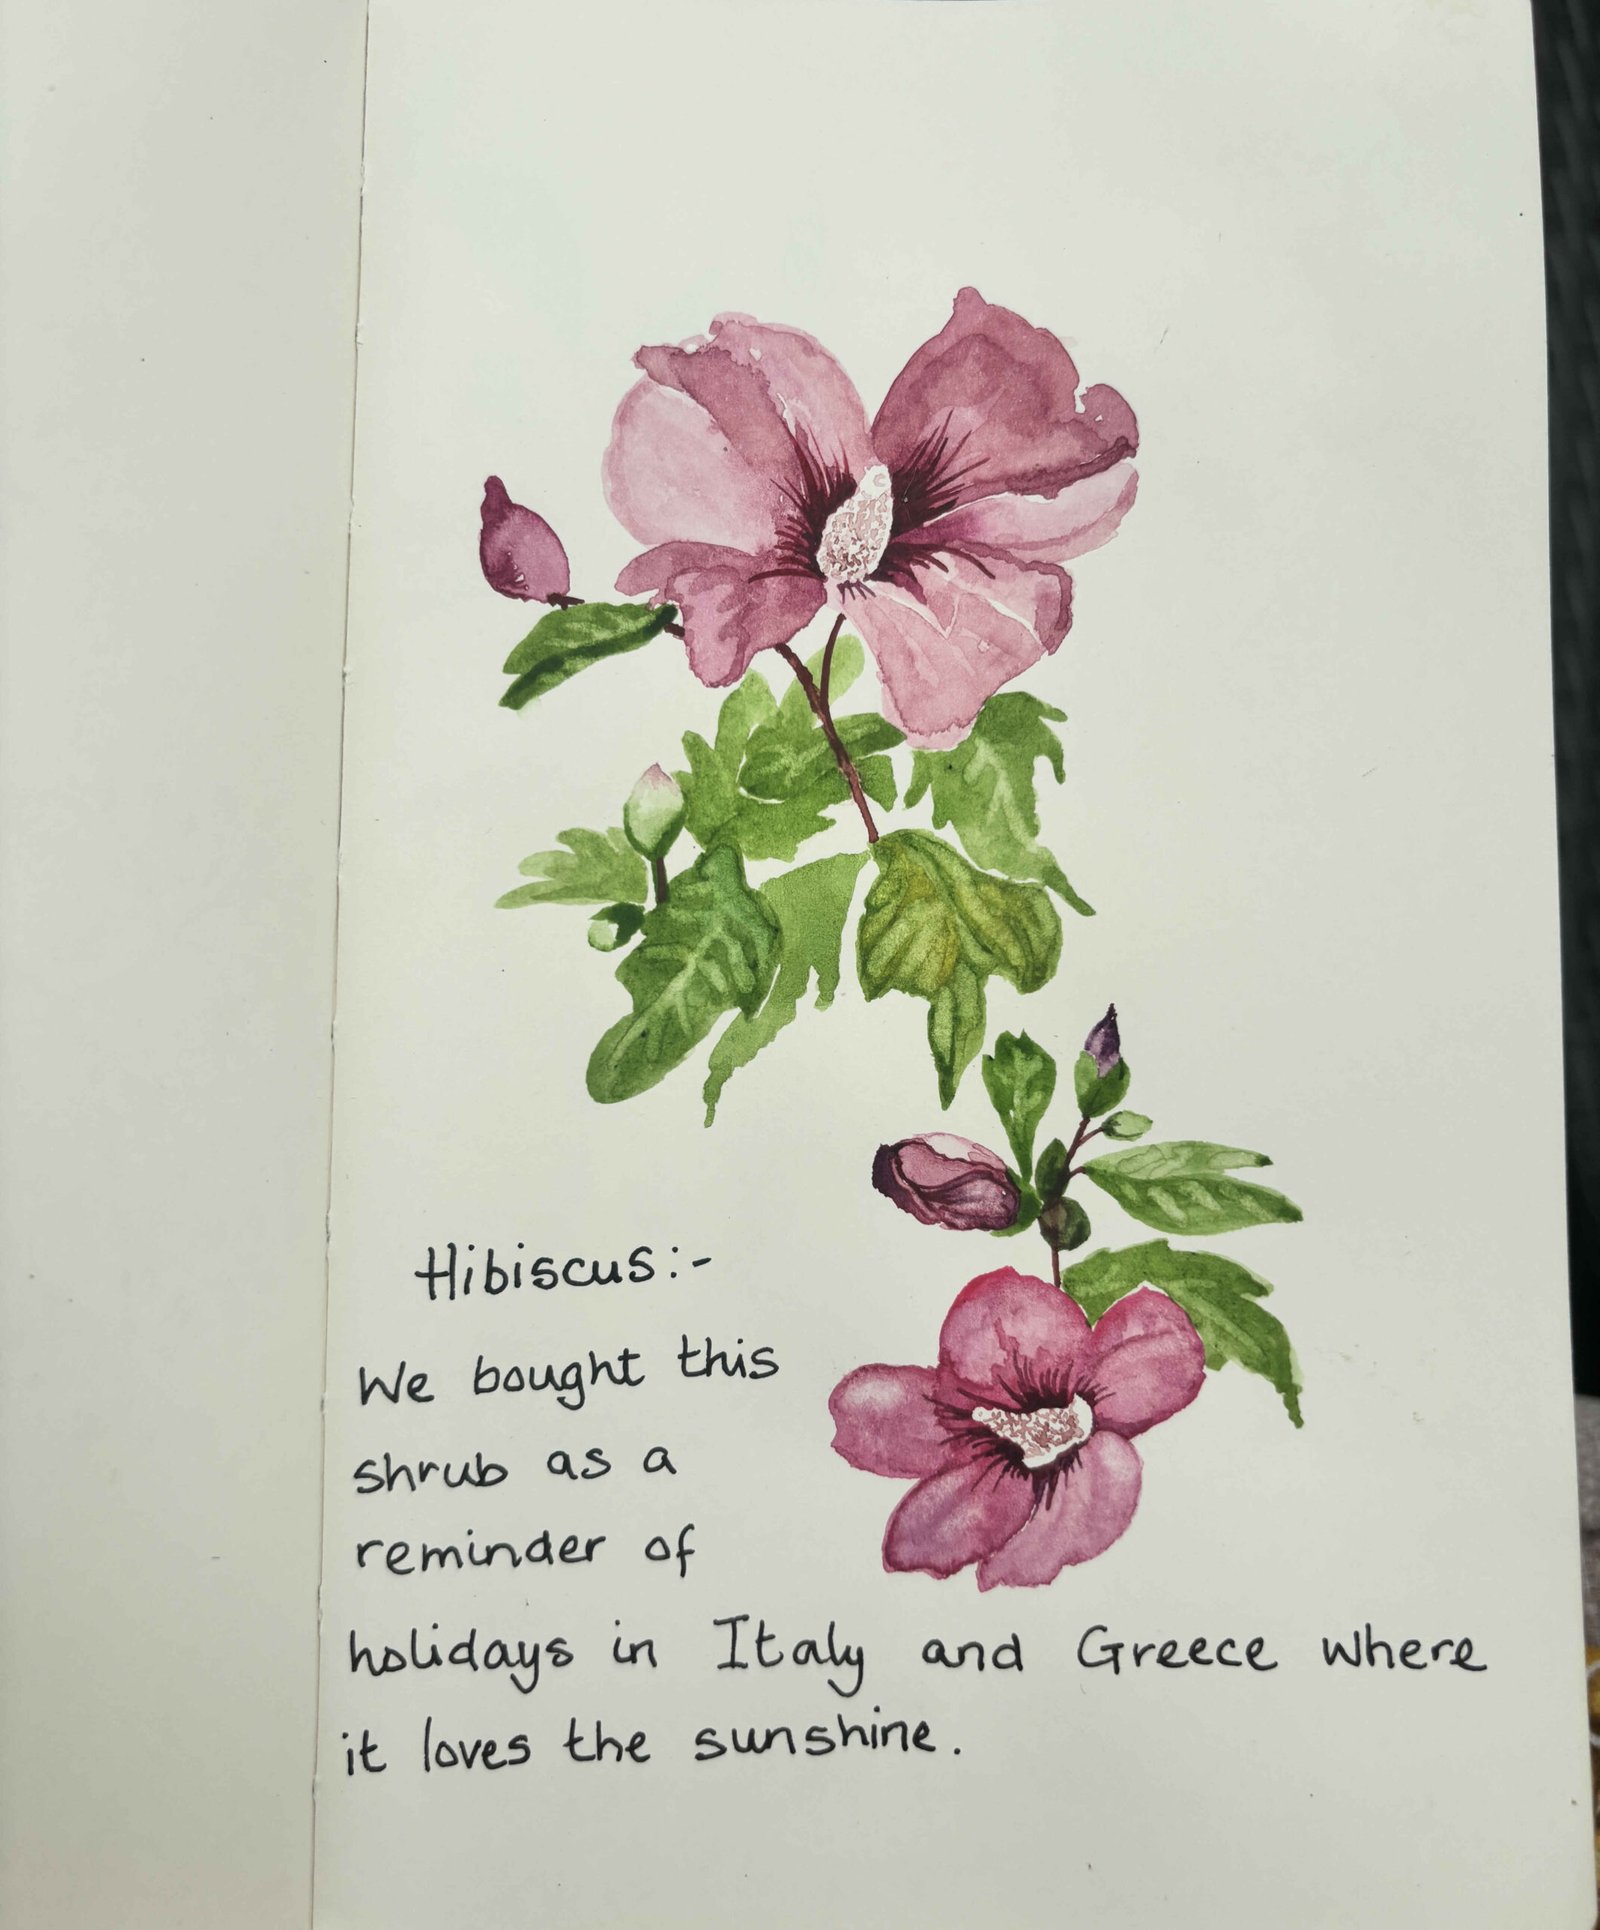 Hibiscus:-
We bought this
shrub as a
reminder of
holidays in Italy and Greece where
it loves the sunshine.